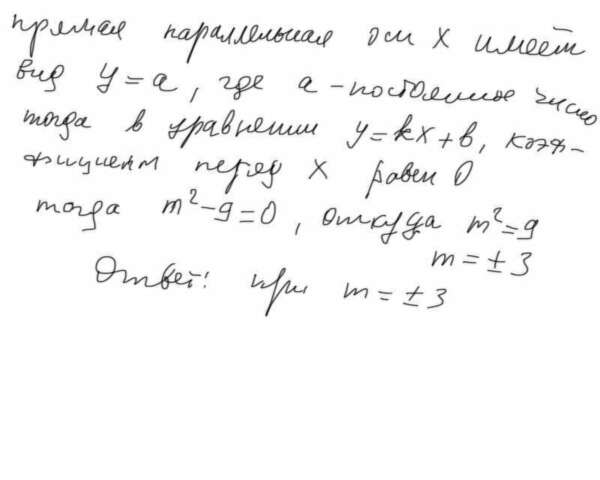 прямая параллельная оси x имеет
вид y = a, где a - постоянное число
тогда в уравнении y = kx + b, коэф-
фициент перед x равен 0
тогда m² - 9 = 0, откуда m² = 9
m = ± 3
Ответ: при m = ± 3